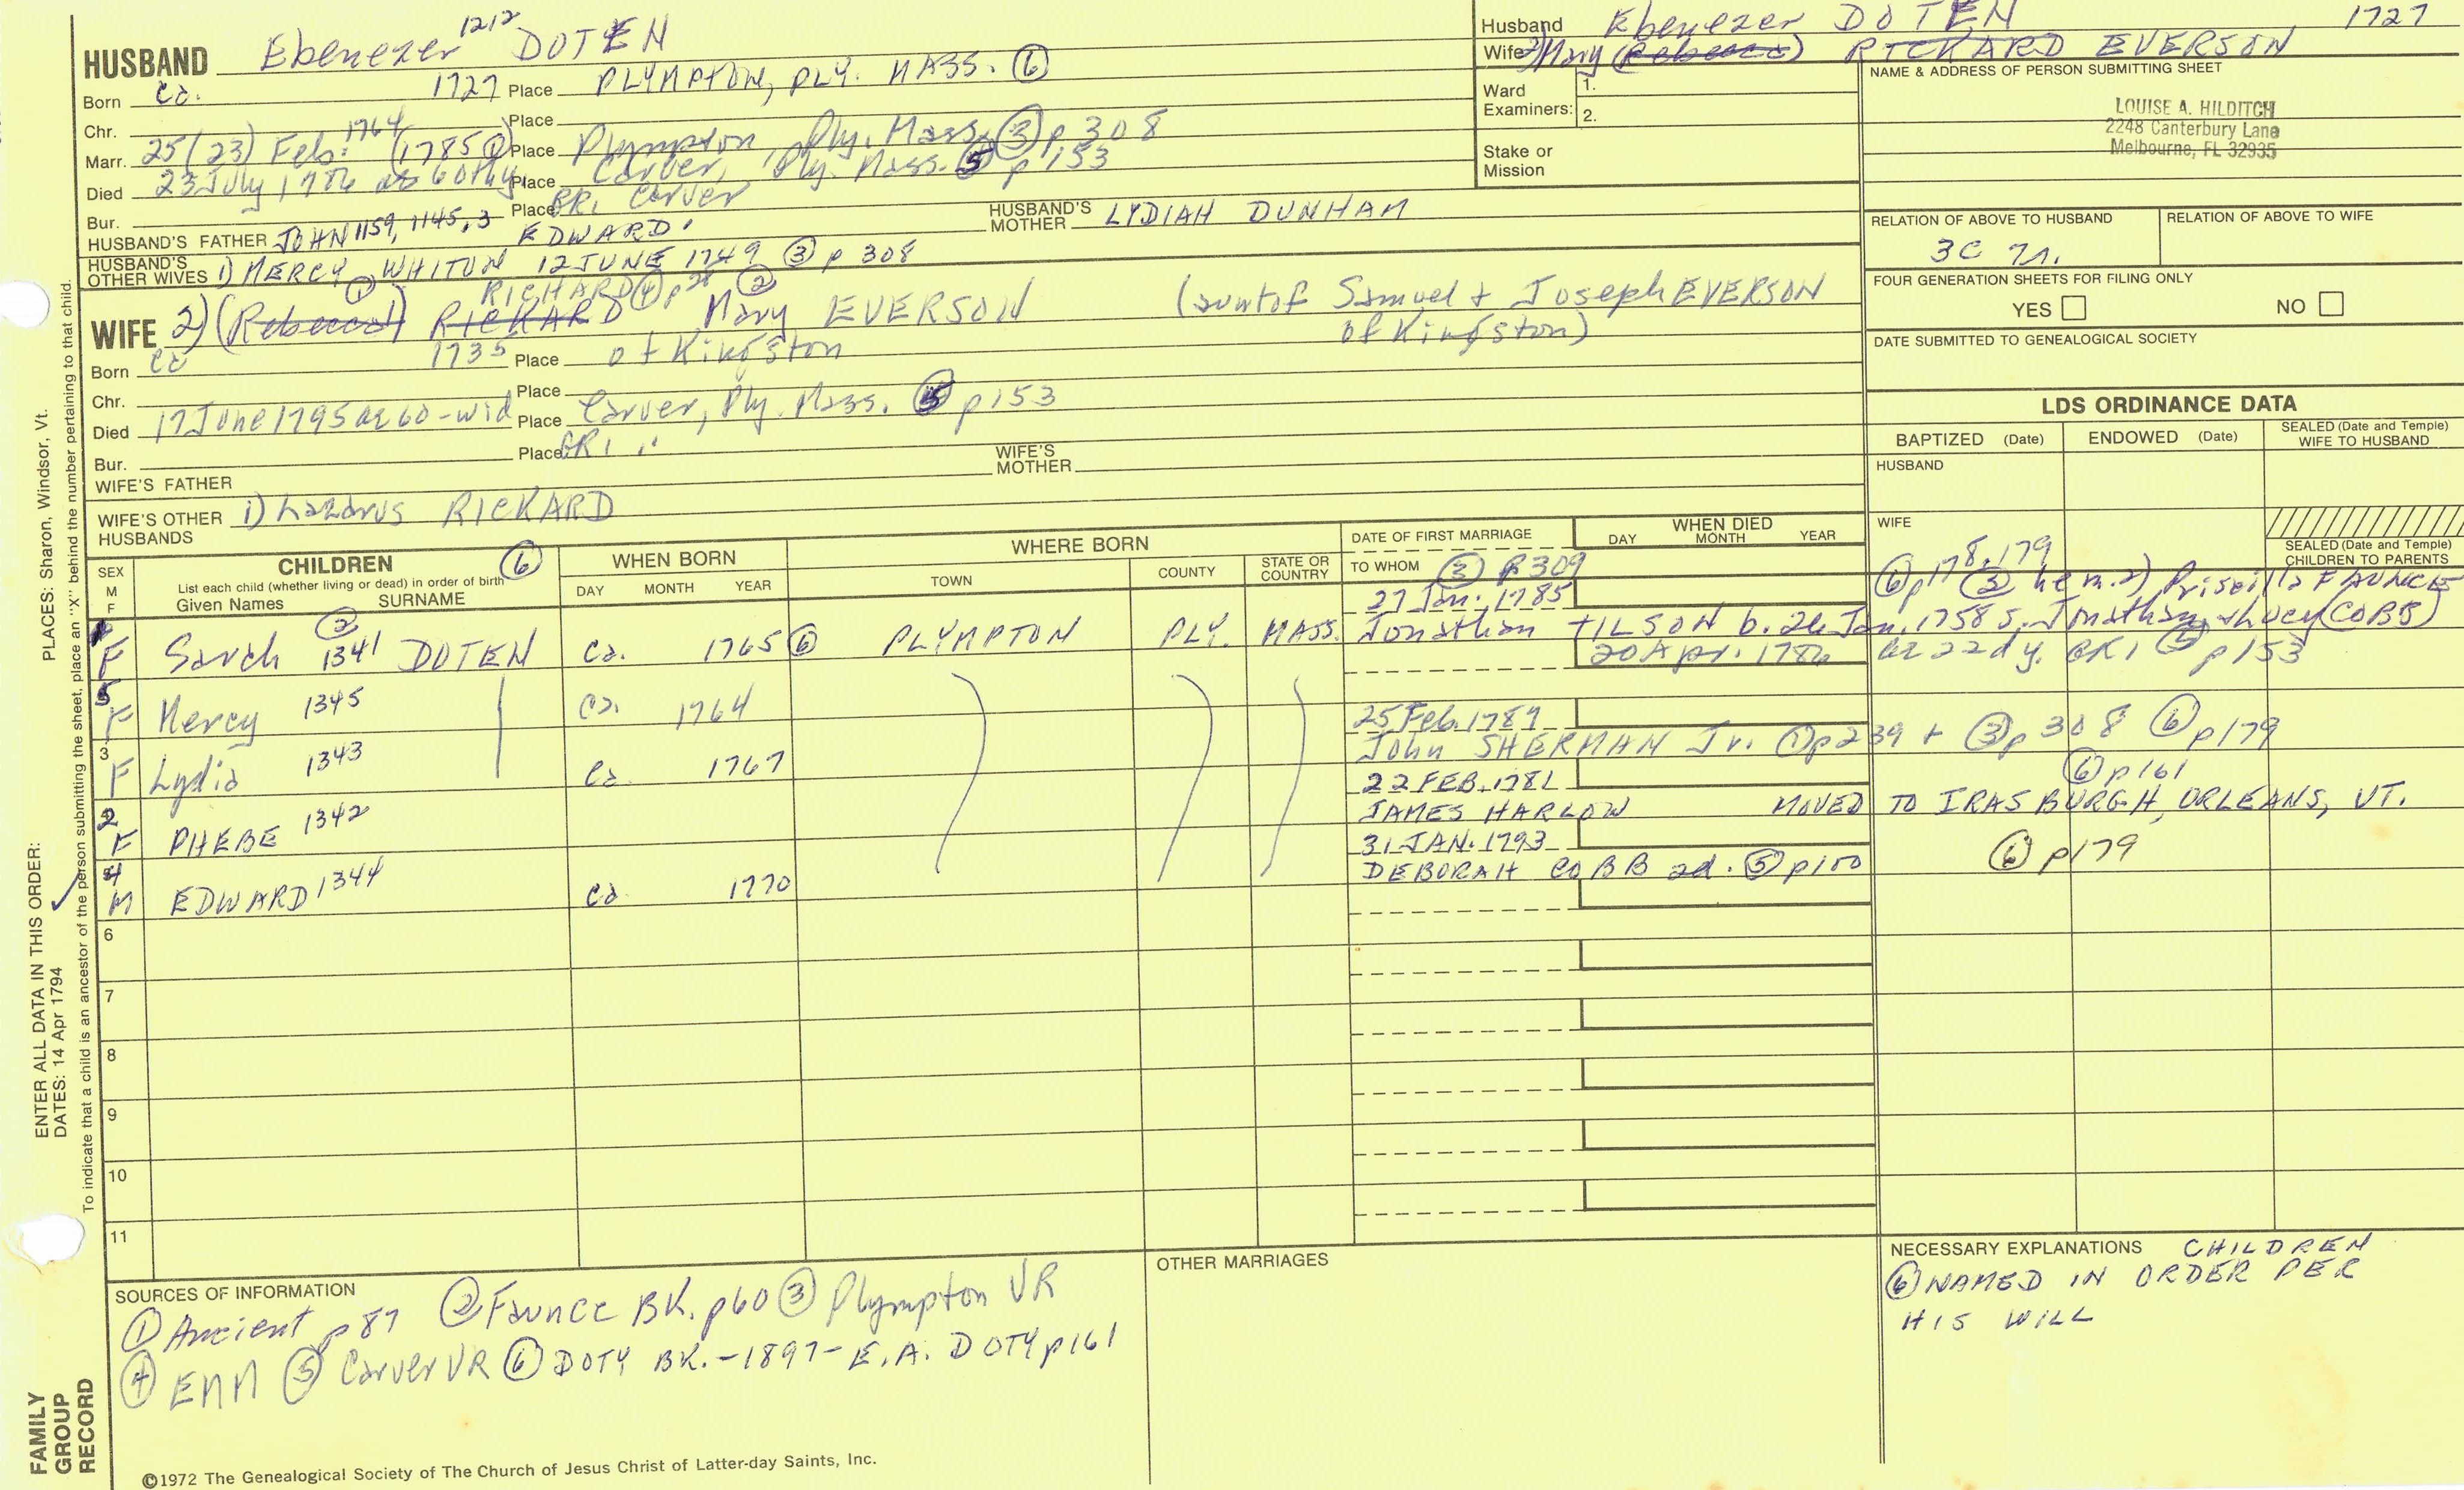 HUSBAND Ebenezer 1212 DOTEN
Born ca. 1727 Place PLYMPTON, PLY. MASS. ⑥
Chr. Place
Marr. 25(23) Feb. 1764 (1785①) Place Plympton, Ply. Mass. ③ p 308
Died 23 July 1786 ae 60thy. Place Carver, Ply. Mass. ⑤ p 153
Bur. Place GR1 Carver
HUSBAND'S FATHER JOHN 1159, 1145, 3 EDWARD HUSBAND'S MOTHER LYDIAH DUNHAM
HUSBAND'S OTHER WIVES 1) MERCY WHITON 12 JUNE 1749 ③ p 308
① RICHARD ④ p 28 ②
WIFE 2) (Rebecca) RICKARD Mary EVERSON (aunt of Samuel + Joseph EVERSON
of Kingston)
Born ca 1735 Place of Kingston
Chr. Place
Died 17 June 1795 ae 60-wid Place Carver, Ply. Mass. ⑤ p 153
Bur. Place GR1 "
WIFE'S FATHER WIFE'S MOTHER
WIFE'S OTHER HUSBANDS 1) Lazarus RICKARD
Husband Ebenezer DOTEN 1727
Wife 2) Mary (Rebecca) RICKARD EVERSON
Ward Examiners: 1.
2.
Stake or Mission
NAME & ADDRESS OF PERSON SUBMITTING SHEET
LOUISE A. HILDITCH
2248 Canterbury Lane
Melbourne, FL 32935
RELATION OF ABOVE TO HUSBAND RELATION OF ABOVE TO WIFE
3C 7r.
FOUR GENERATION SHEETS FOR FILING ONLY
YES NO
DATE SUBMITTED TO GENEALOGICAL SOCIETY
LDS ORDINANCE DATA
BAPTIZED (Date) ENDOWED (Date) SEALED (Date and Temple) WIFE TO HUSBAND
HUSBAND
WIFE
SEALED (Date and Temple) CHILDREN TO PARENTS
SEX M F
CHILDREN ⑥
List each child (whether living or dead) in order of birth
Given Names SURNAME
WHEN BORN
DAY MONTH YEAR
WHERE BORN
TOWN COUNTY STATE OR COUNTRY
DATE OF FIRST MARRIAGE
TO WHOM ③ p 309
WHEN DIED
DAY MONTH YEAR
27 Jan. 1785 ⑥ p 178, 179 ② he m. 2) Priscilla FAUNCE
F Sarah ② 1341 DOTEN ca. 1765 ⑥ PLYMPTON PLY. MASS. Jonathan TILSON b. 26 Jan. 1758 s. Jonathan + Lucy (COBB)
20 Apr. 1786 ae 22d y. GR1 ⑤ p 153
5 F Mercy 1345 ca. 1764
25 Feb. 1789
3 F Lydia 1343 ca 1767 John SHERMAN Jr. ① p 239 + ③ p 308 ⑥ p 179
22 FEB. 1781 ⑥ p 161
2 F PHEBE 1342 JAMES HARLOW MOVED TO IRASBURGH, ORLEANS, VT.
31 JAN. 1793
4 M EDWARD 1344 ca 1770 DEBORAH COBB ad. ⑤ p 100 ⑥ p 179
6
7
8
9
10
11
SOURCES OF INFORMATION
① Ancient p 87 ② Faunce BK. p 60 ③ Plympton VR
④ EMM ⑤ Carver VR ⑥ DOTY BK.-1897-E.A. DOTY p 161
OTHER MARRIAGES
NECESSARY EXPLANATIONS CHILDREN
⑥ NAMED IN ORDER PER
HIS WILL
©1972 The Genealogical Society of The Church of Jesus Christ of Latter-day Saints, Inc.
FAMILY GROUP RECORD
ENTER ALL DATA IN THIS ORDER:
DATES: 14 Apr 1794
PLACES: Sharon, Windsor, Vt.
To indicate that a child is an ancestor of the person submitting the sheet, place an "X" behind the number pertaining to that child.